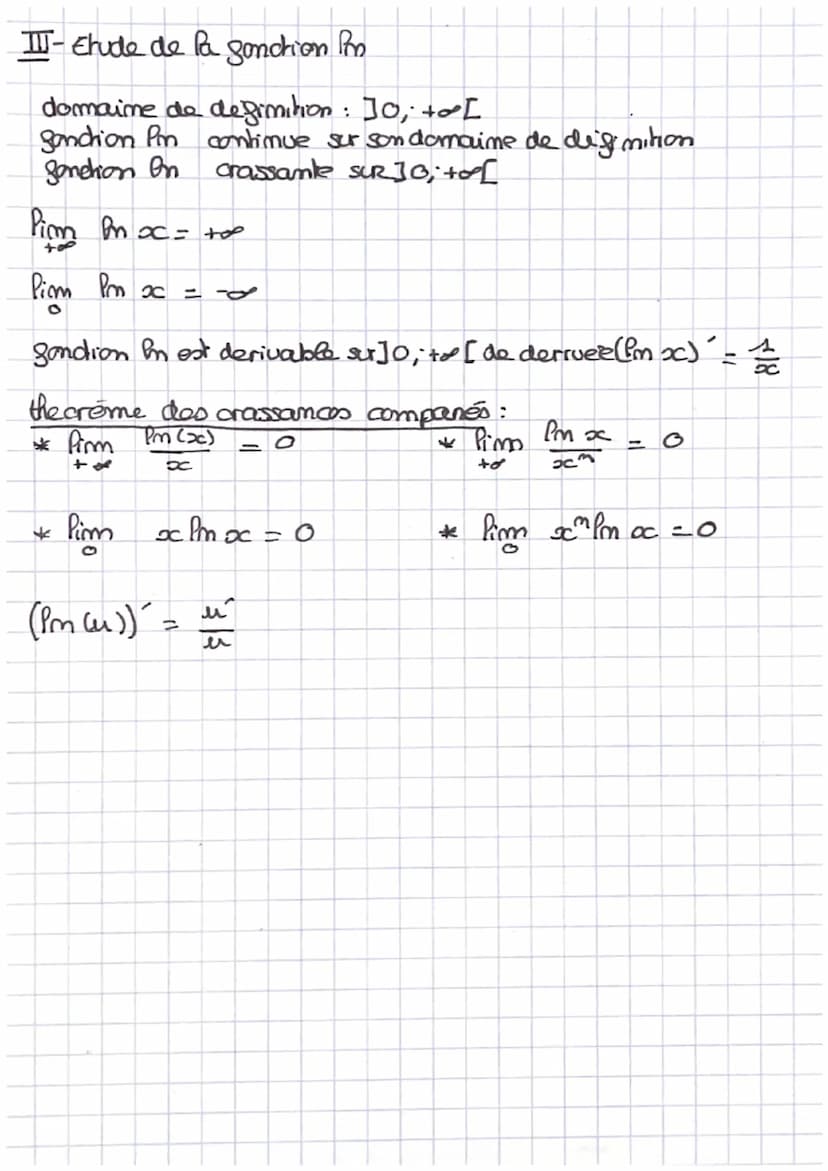 III- Etude de la fonction ln
domaine de definition : ]0; +∞[
fonction ln continue sur son domaine de définition
fonction ln croissante sur ]0; +∞[
lim ln x = +∞
+∞
lim ln x = -∞
0
fonction ln est derivable sur ]0; +∞[ de derivée (ln x)' = 1/x
theorème des croissances comparés :
* lim ln(x)/x = 0 * lim ln x/x^n = 0
+∞ +∞
* lim x ln x = 0 * lim x^n ln x = 0
0 0
(ln(u))' = u'/u